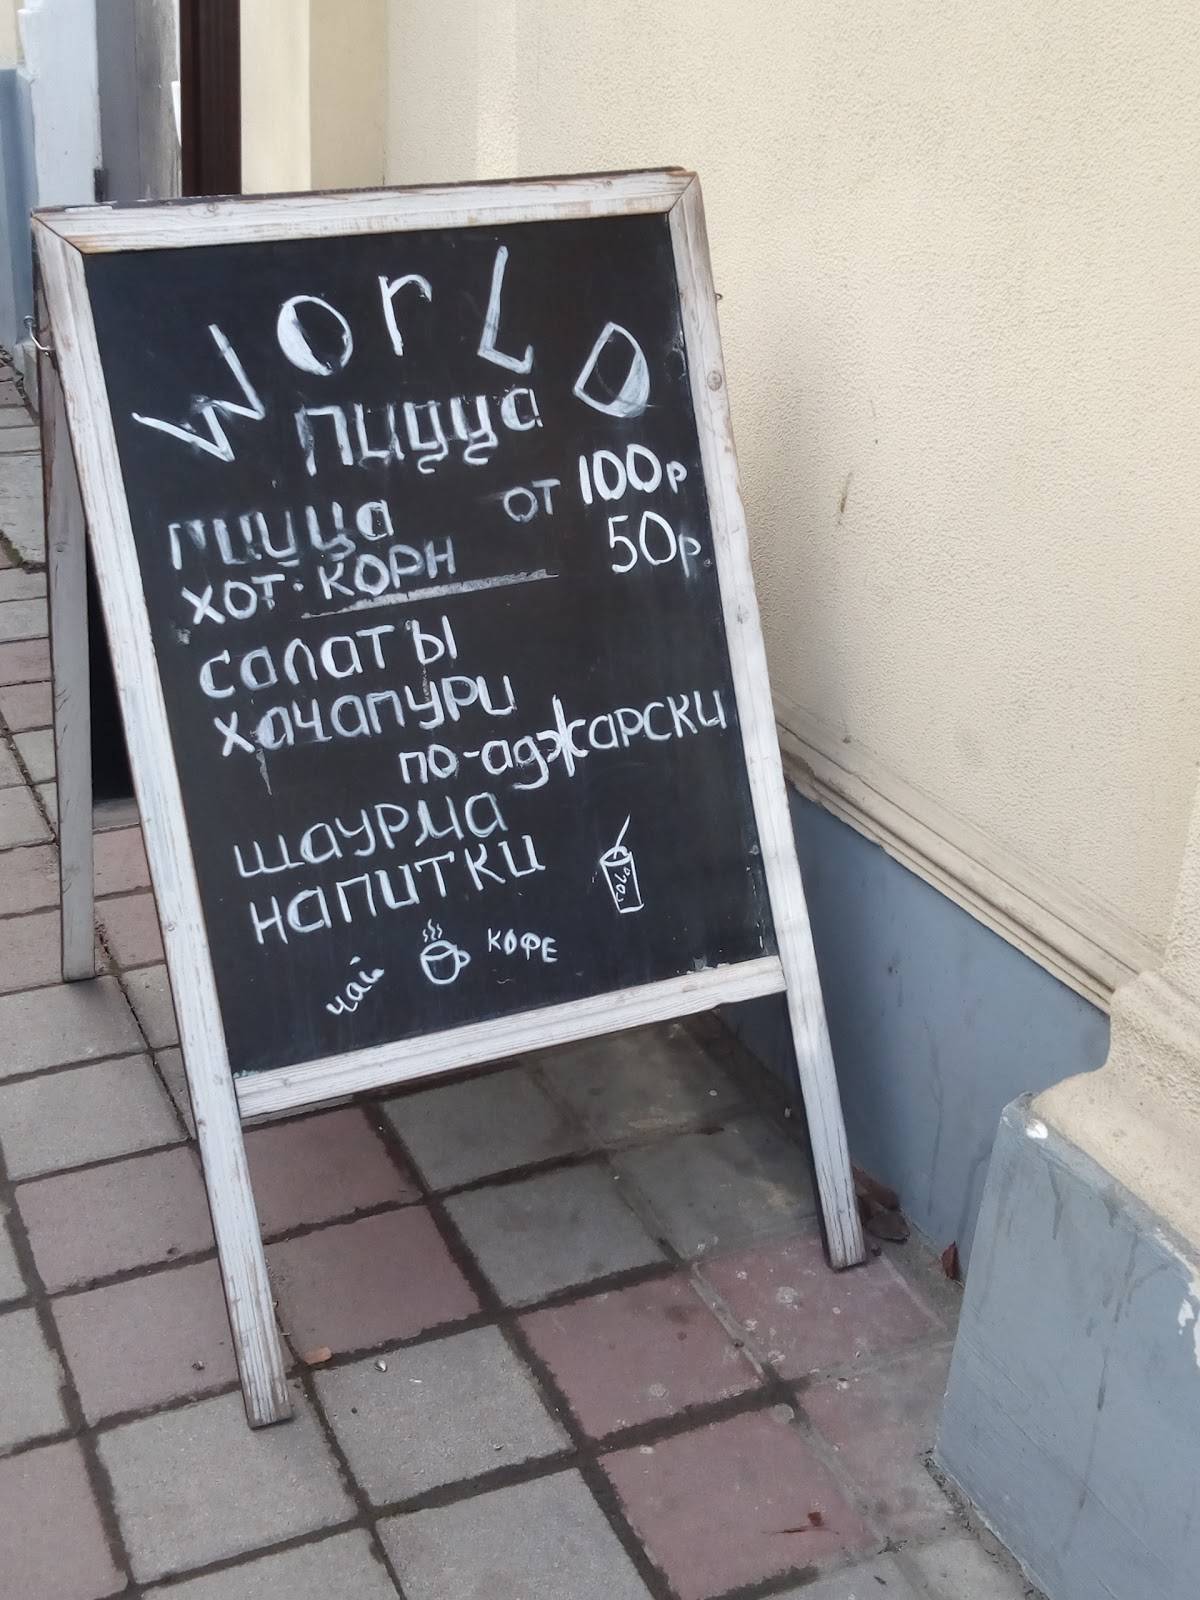 WorLD
пицца
пицца от 100р
хот-корн 50р.
салаты
хачапури
по-аджарски
шаурма
напитки
cola
чай кофе